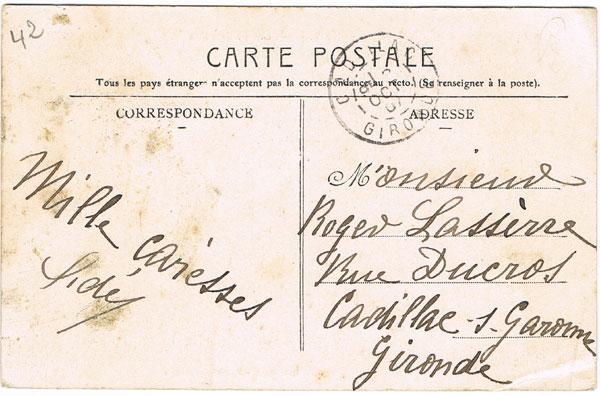 42
CARTE POSTALE
Tous les pays étrangers n'acceptent pas la correspondance au recto. (Se renseigner à la poste).
CORRESPONDANCE
ADRESSE
CADILLAC
GIRONDE
Mille
caresses
M'onsieur
Roger Lassèrre
Rue Ducros
Cadillac-s-Garonne
Gironde